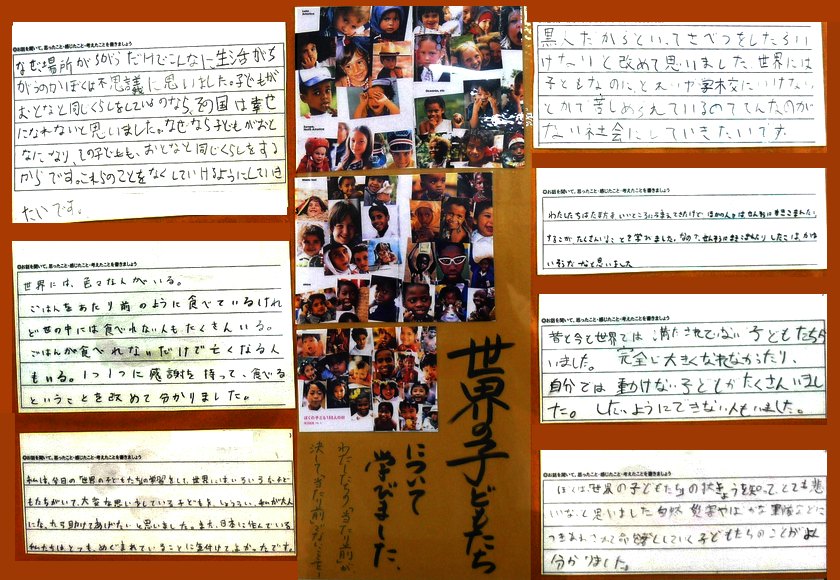 ◎お話を聞いて、思ったこと・感じたこと・考えたことを書きましょう
なぜ、場所がちがうだけでこんなに生活がち
がうのかぼくは不思議に思いました。子どもが
おとなと同じくらしをしているのなら、その国は幸せ
になれないと思いました。なぜなら子どもがおと
なになり、その子どもも、おとなと同じくらしをする
からです。これらのことをなくしていけるようにしていき
たいです。
◎お話を聞いて、思ったこと・感じたこと・考えたことを書きましょう
世界には、色々な人がいる。
ごはんをあたり前のように食べているけれ
ど世の中には食べれない人もたくさんいる。
ごはんが食べれないだけで亡くなる人
もいる。1つ1つに感謝を持って、食べる
ということを改めて分かりました。
◎お話を聞いて、思ったこと・感じたこと・考えたことを書きましょう
私は、今日の「世界の子どもたち」の学習をして、世界にはいろいろな子ど
もたちがいて、大変な思いをしている子どもを、しょうらい、私が大人
になったら助けてあげたいと思いました。また、日本に住んでいる
私たちはとても、めぐまれていることに気付けてよかったです。
世界の子どもたち
について
学びました。
わたしたちの「当たり前」が
決して当たり前ではない
黒人だからといってさべつをしたらい
けないと改めて思いました。世界には
子どもなのにとれいや学校にいけない
とかで苦しめられているので
ない社会にしていきたいです。
◎お話を聞いて、思ったこと・感じたこと・考えたことを書きましょう
わたしたちはいいところに生まれてきたけど ほかの人は せんそうに まきこまれたり
することが たくさんあることを 学びました。なので、せんそうに まきこまれたり したこは、かわ
いそうだなと思いました
◎お話を聞いて、思ったこと・感じたこと・考えたことを書きましょう
昔と今と世界では 満たされていない 子どもたちが
いました。 完全に大きくなれなかったり、
自分では 動けない 子どもが たくさんいまし
た。 したいようにできない人もいました。
◎お話を聞いて、思ったこと・感じたこと・考えたことを書きましょう
ぼくは、「世界の子どもたち」の状きょうを知って、とても悲し
いな、と思いました 自然 災害や
つきあわされて 命を落としていく 子どもたちのことがよく
分かりました。